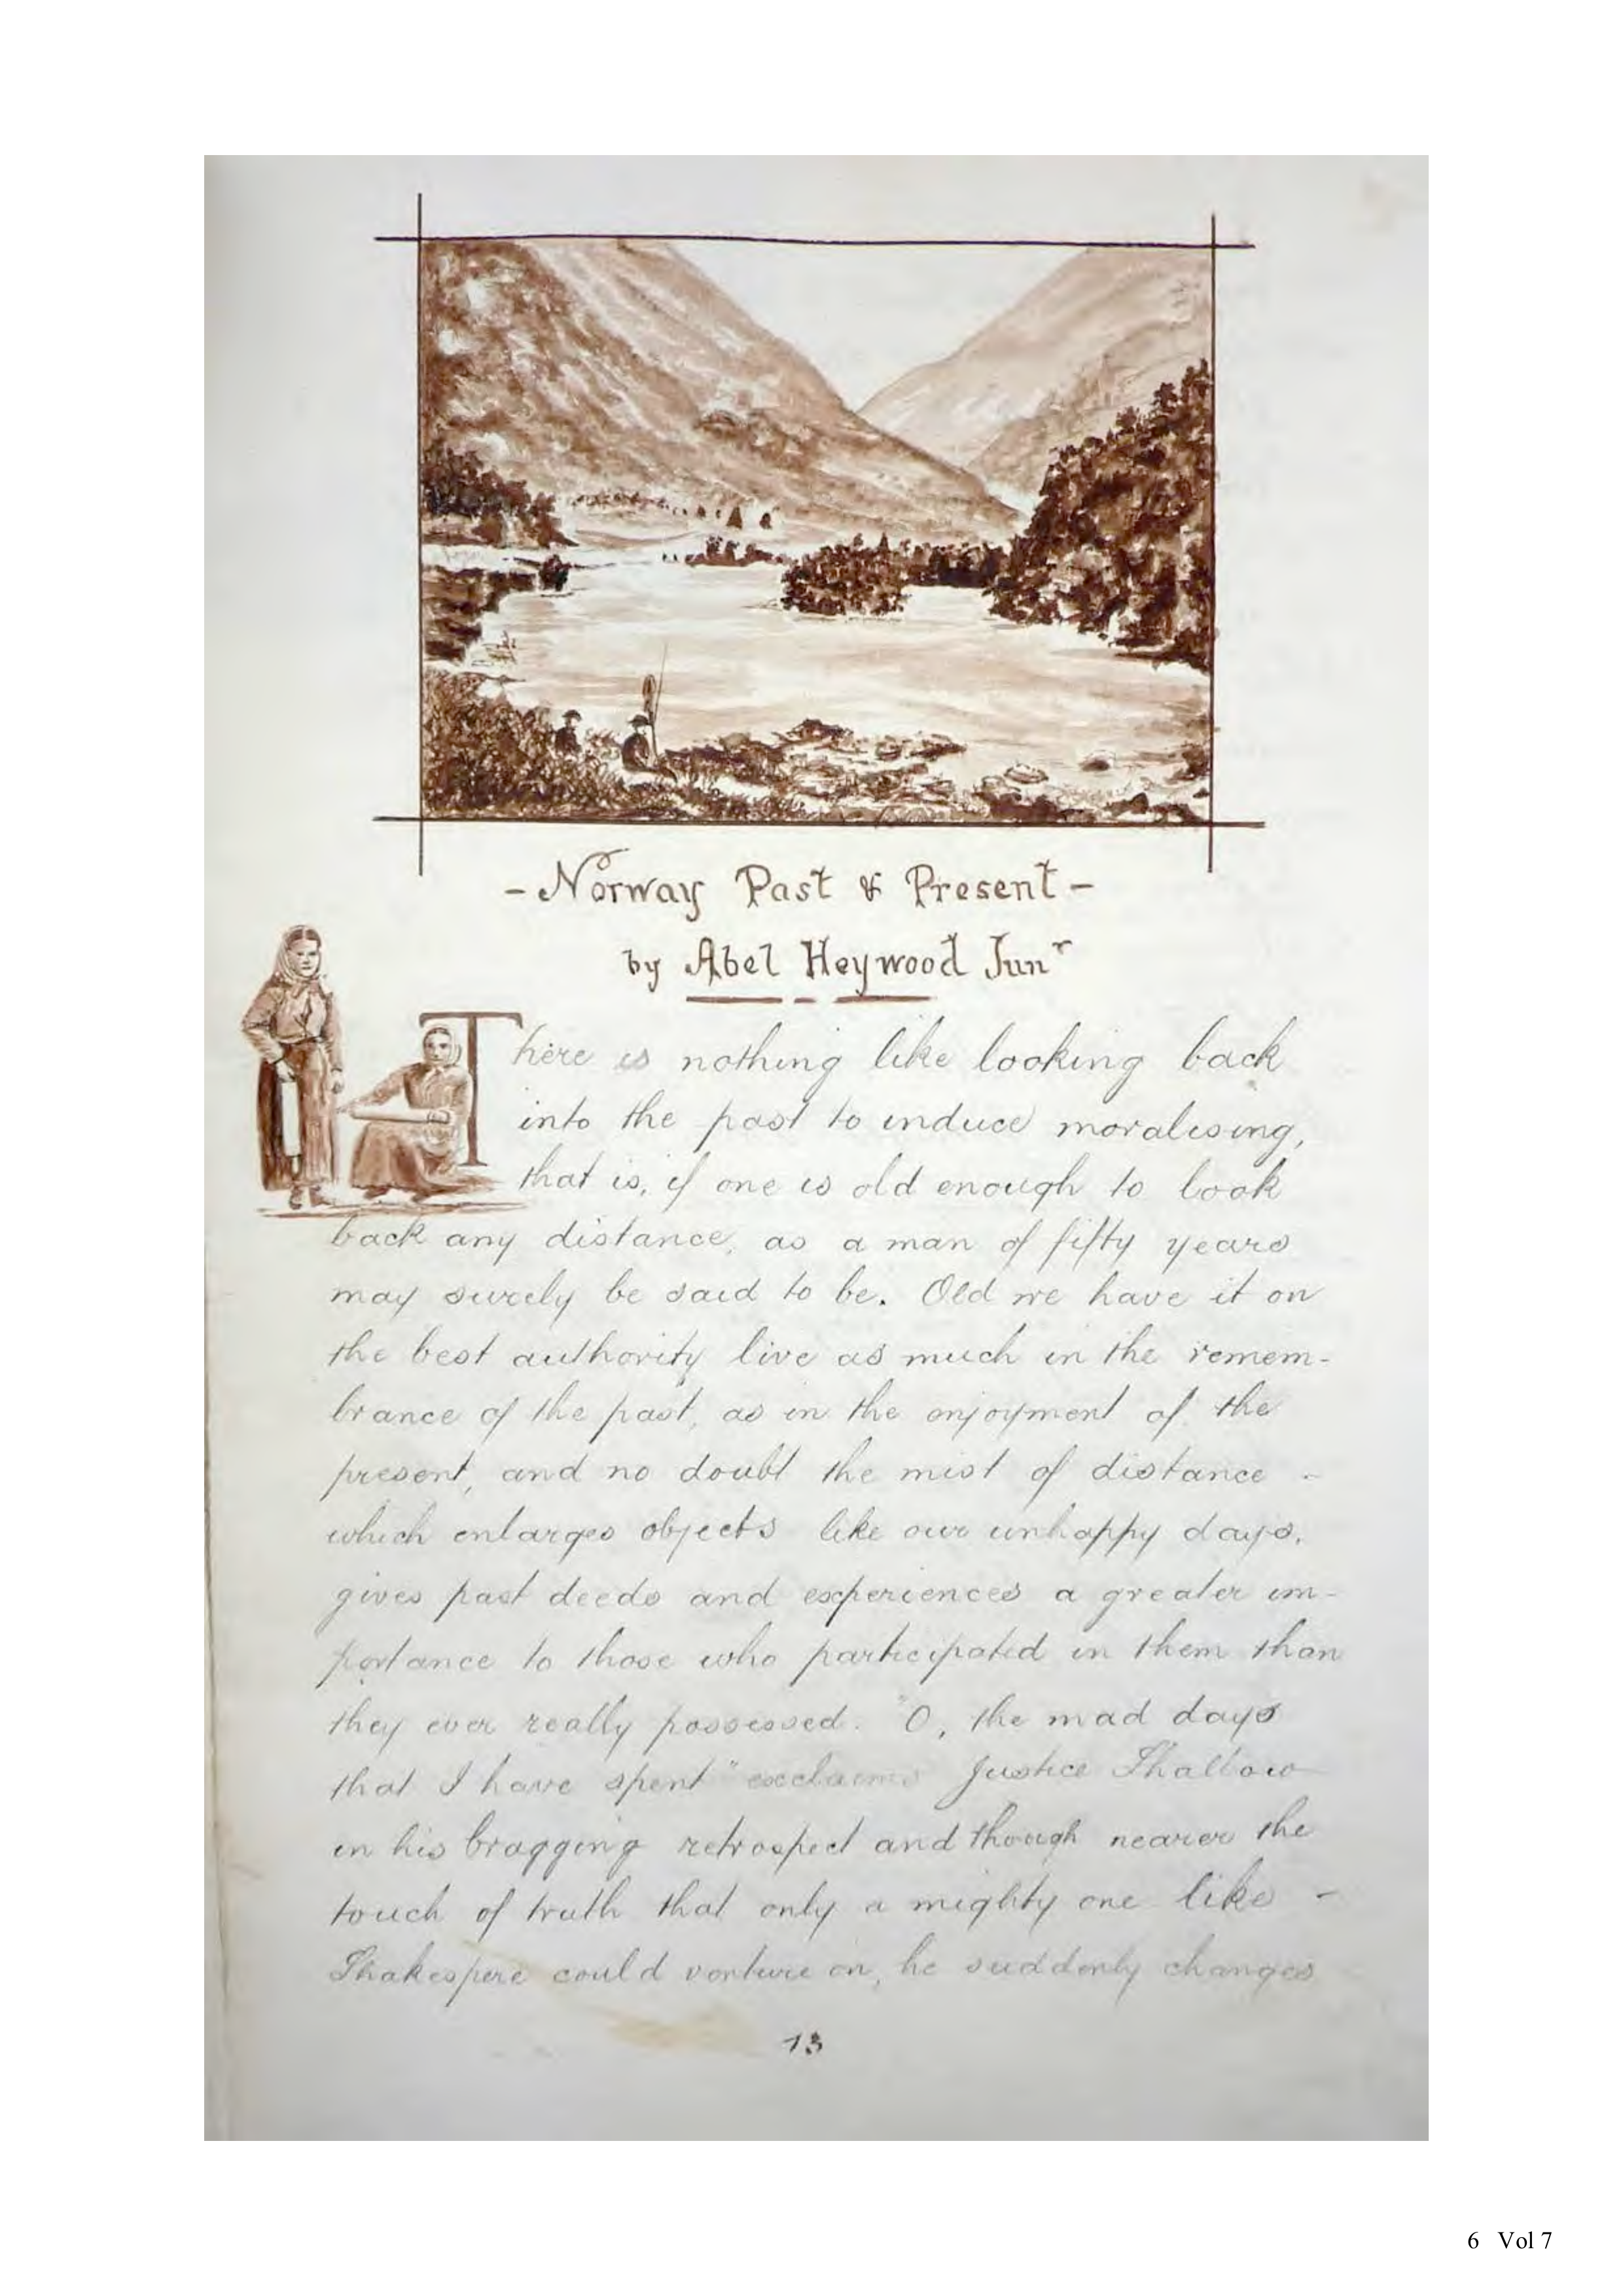 - Norway Past & Present -
by Abel Heywood Junr
There is nothing like looking back
into the past to induce moralising,
that is, if one is old enough to look
back any distance, as a man of fifty years
may surely be said to be. Old we have it on
the best authority live as much in the remem-
brance of the past, as in the enjoyment of the
present, and no doubt the mist of distance -
which enlarges objects like our unhappy days,
gives past deeds and experiences a greater im-
portance to those who participated in them than
they ever really possessed. "O, the mad days
that I have spent" exclaims Justice Shallow
in his bragging retrospect and though nearer the
touch of truth that only a mighty one like -
Shakespere could venture on, he suddenly changes
13
6 Vol 7